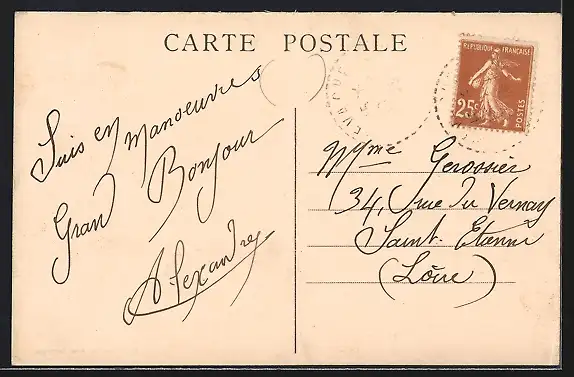 CARTE POSTALE
REPUBLIQUE FRANÇAISE
25c
POSTES
Suis en manoeuvres
Grand Bonjour
Alexandre
Mme Gerossier
34, rue du Vernay
Saint-Etienne
(Loire)